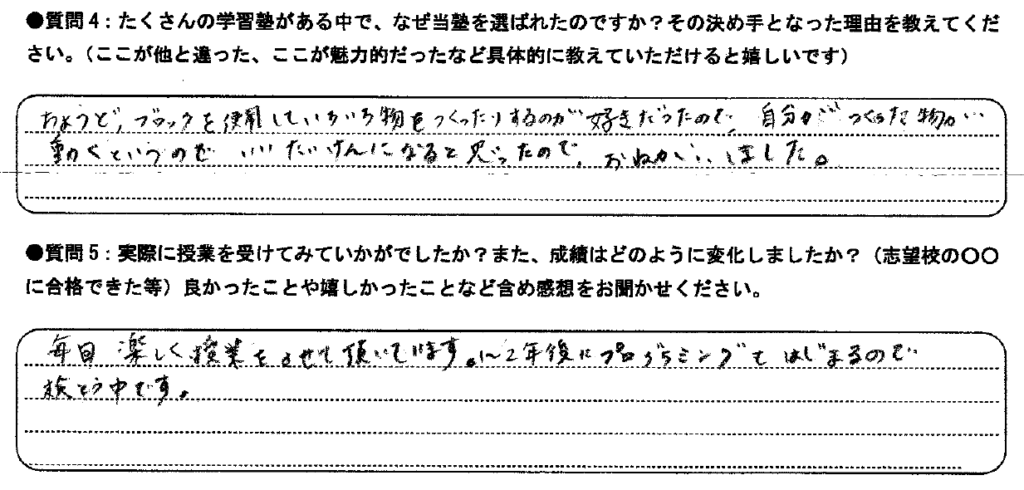 ●質問４：たくさんの学習塾がある中で、なぜ当塾を選ばれたのですか？その決め手となった理由を教えてくだ
さい。（ここが他と違った、ここが魅力的だったなど具体的に教えていただけると嬉しいです）
ちょうど、ブロックを使用していろいろ物をつくったりするのが好きだったので、自分がつくった物が
動くというので いいたいけんになると思ったので、おねがいしました。
●質問５：実際に授業を受けてみていかがでしたか？また、成績はどのように変化しましたか？（志望校の〇〇
に合格できた等）良かったことや嬉しかったことなど含め感想をお聞かせください。
毎日 楽しく授業をさせて頂いてます。1〜2年後にプログラミングもはじまるので
検とう中です。